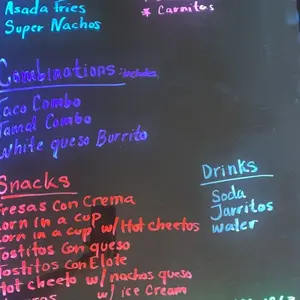 Asada Fries
Super Nachos
* Carnitas
Combinations: includes
Taco Combo
Tamal Combo
White queso Burrito
Snacks
Fresas Con Crema
Corn in a cup
Corn in a cup w/ Hot cheetos
Tostitos Con queso
Tostitos Con Elote
Hot cheeto w/ nachos queso
w/ ice Cream
Drinks
Soda
Jarritos
water